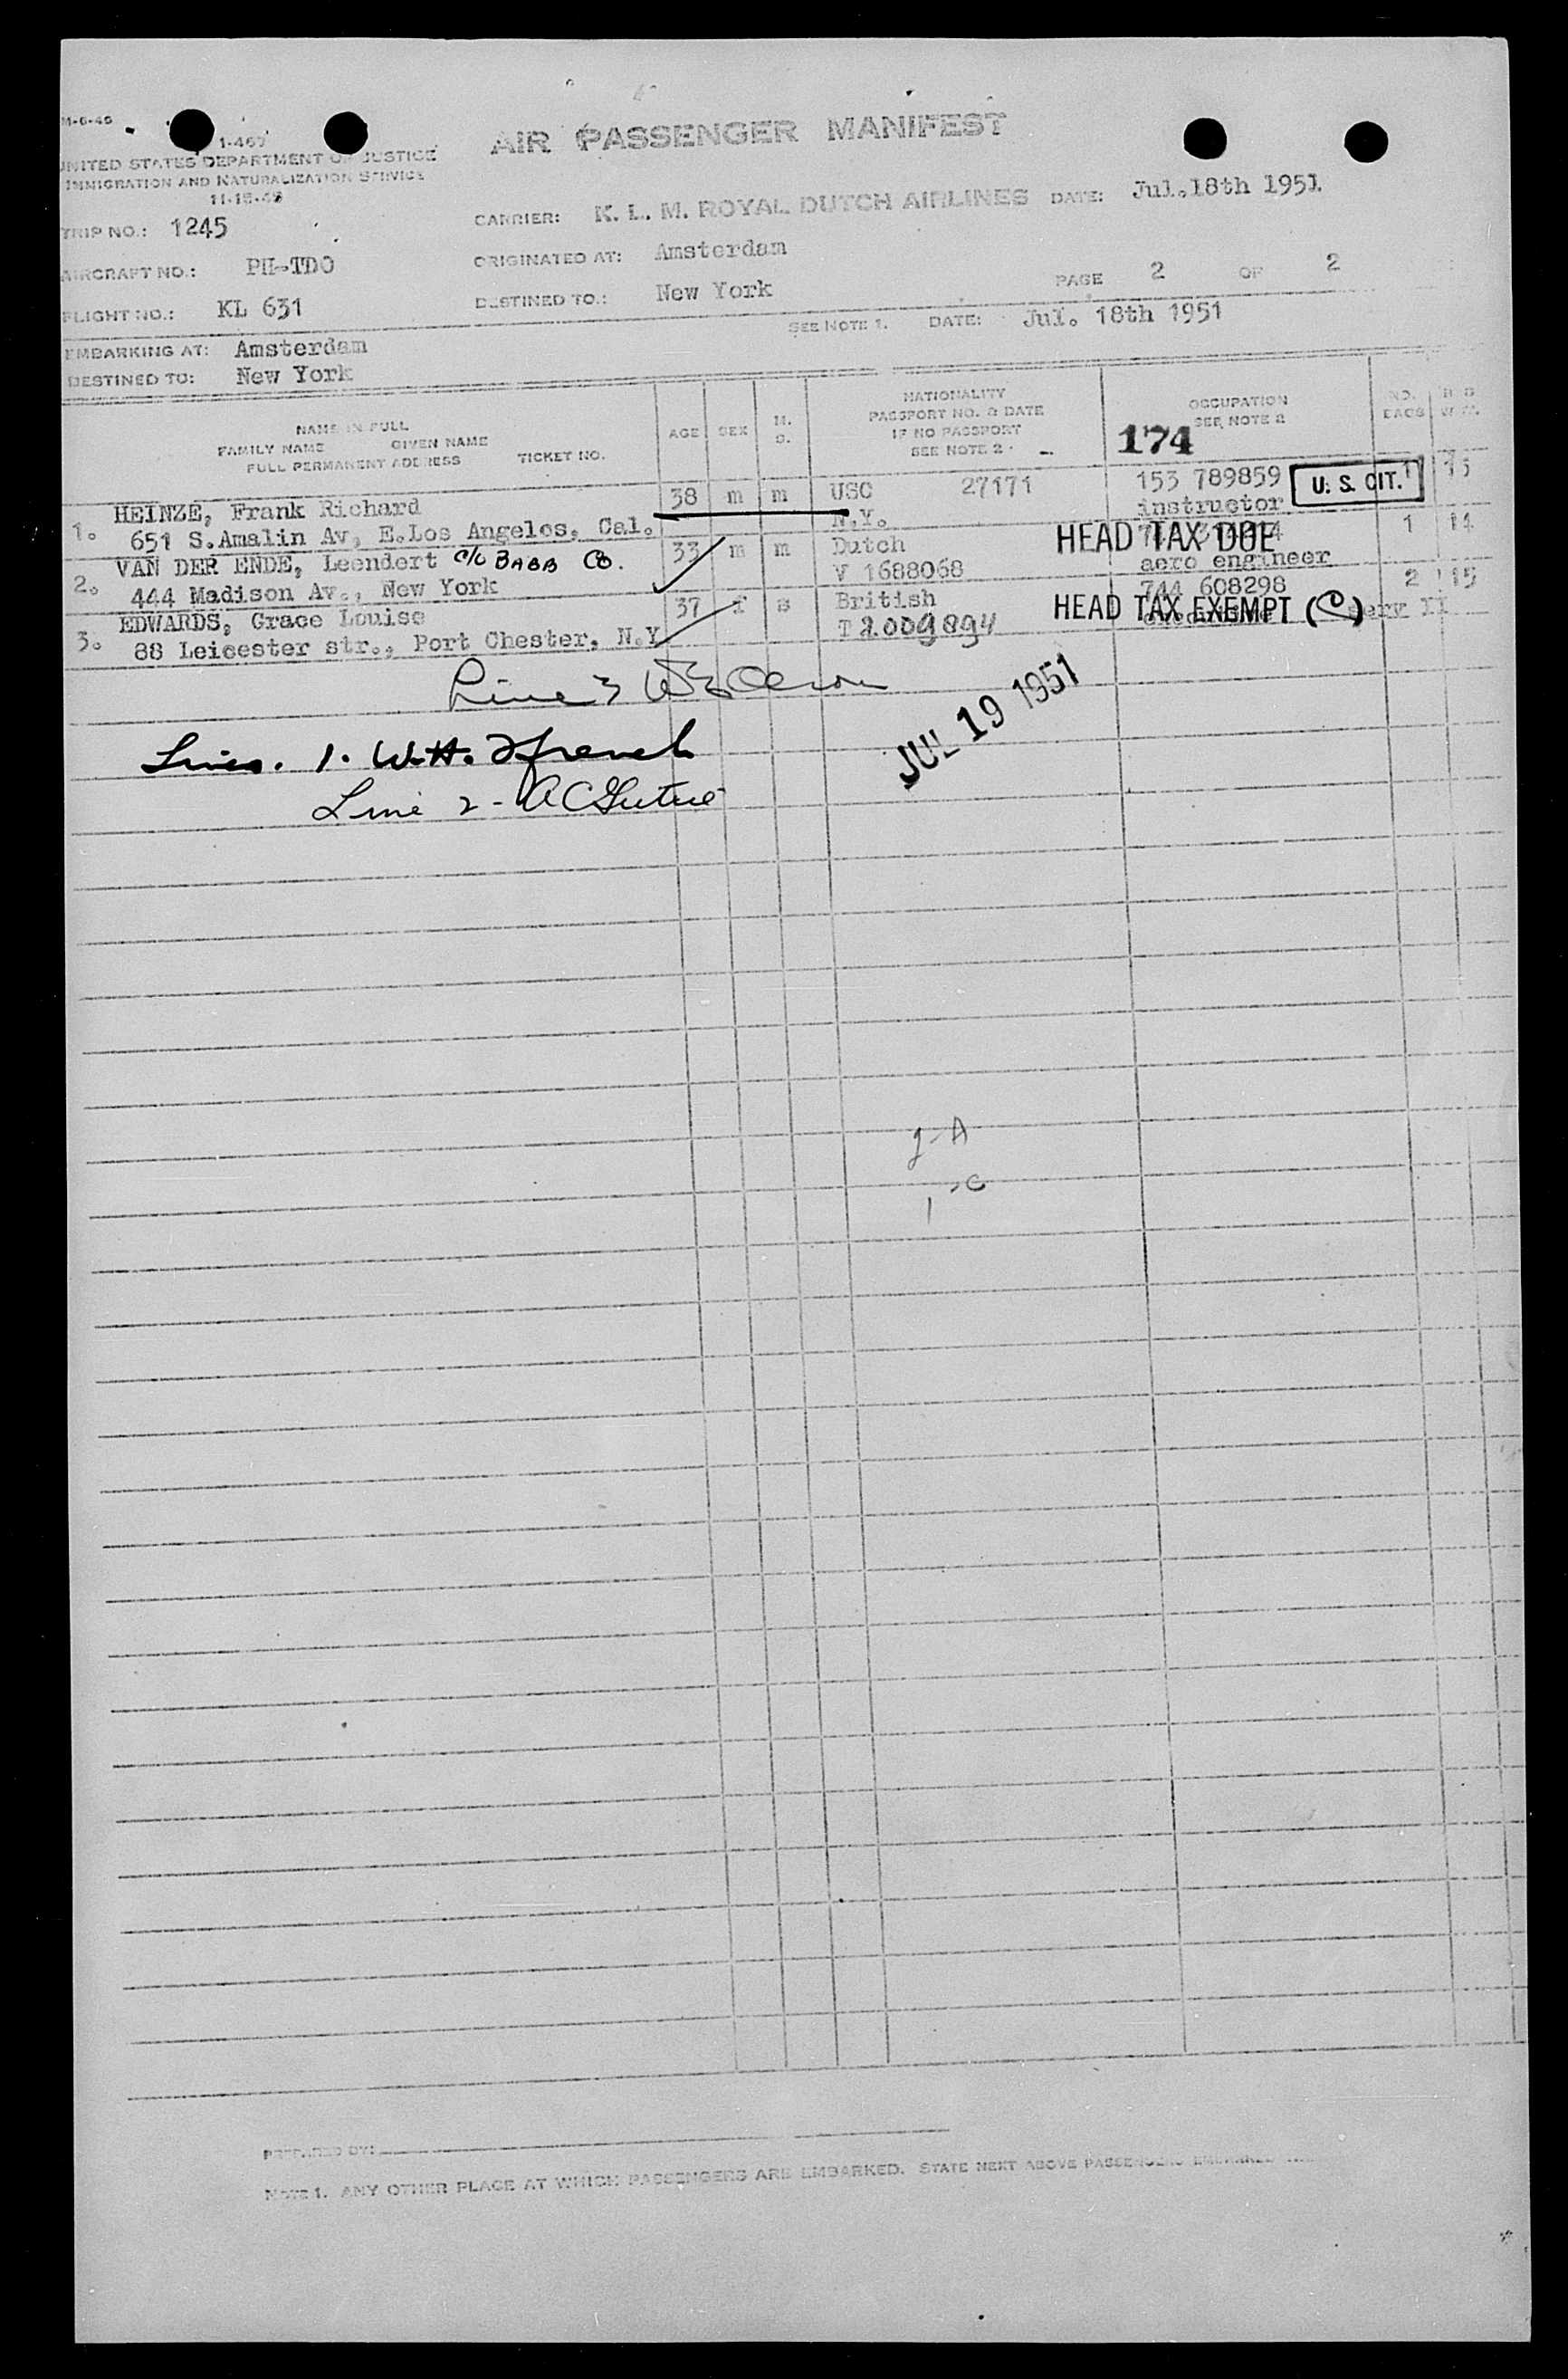 M-6-46
AIR PASSENGER MANIFEST
1-467
UNITED STATES DEPARTMENT OF JUSTICE
IMMIGRATION AND NATURALIZATION SERVICE
TRIP NO.: 1245
CARRIER: K. L. M. ROYAL DUTCH AIRLINES DATE: Jul.18th 1951
AIRCRAFT NO.: PH-TDO
ORIGINATED AT: Amsterdam
FLIGHT NO.: KL 631
DESTINED TO.: New York
PAGE 2 OF 2
SEE NOTE 1. DATE: Jul. 18th 1951
EMBARKING AT: Amsterdam
DESTINED TO: New York
NAME IN FULL
FAMILY NAME GIVEN NAME
FULL PERMANENT ADDRESS TICKET NO.
AGE SEX M. S.
NATIONALITY
PASSPORT NO. & DATE
IF NO PASSPORT
SEE NOTE 2
OCCUPATION
SEE NOTE 2
NO. BAGS
174
1. HEINZE, Frank Richard 38 m m USC 27171 153 789859 U. S. CIT. 1
651 S.Amalin Av, E.Los Angeles, Cal. N.Y. instructor
2. VAN DER ENDE, Leendert c/o BABB Co. 33 m m Dutch HEAD TAX DUE 1 14
444 Madison Av., New York V 1688068 aero engineer
3. EDWARDS, Grace Louise 37 f s British 744 608298 2 15
88 Leicester str., Port Chester, N.Y T 2009894 HEAD TAX EXEMPT (C) serv II
Line 3
JUL 19 1951
Lines. 1. W.H. French
Line 2 -
PREPARED BY:
NOTE 1. ANY OTHER PLACE AT WHICH PASSENGERS ARE EMBARKED. STATE NEXT ABOVE PASSENGERS EMBARKED